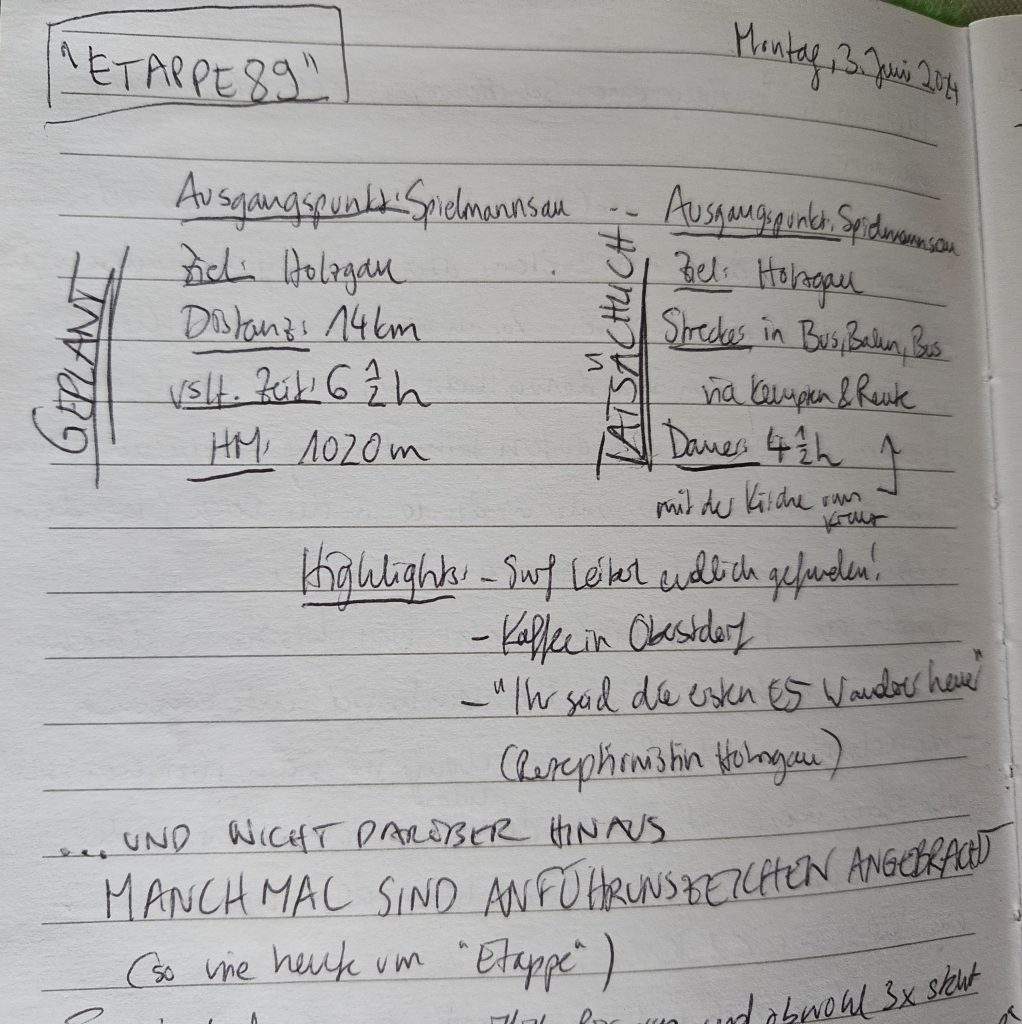 "ETAPPE 89"
Montag, 3. Juni 2024
GEPLANT
Ausgangspunkt: Spielmannsau
Ziel: Holzgau
Distanz: 14 km
vslt. Zeit: 6 1/2 h
HM: 1020 m
TATSÄCHLICH
Ausgangspunkt: Spielmannsau
Ziel: Holzgau
Strecke: in Bus, Bahn, Bus
via Kempten & Reutte
Dauer: 4 1/2 h
mit der Kirche ums
Kreuz
Highlights: - Surf Leiberl endlich gefunden!
- Kaffee in Oberstdorf
- "Ihr seid die ersten E5 Wanderer heuer"
(Rezeptionistin Holzgau)
... UND NICHT DARÜBER HINAUS
MANCHMAL SIND ANFÜHRUNSZEICHEN ANGEBRACHT
(so wie heute um "Etappe")
und obwohl 3x steht